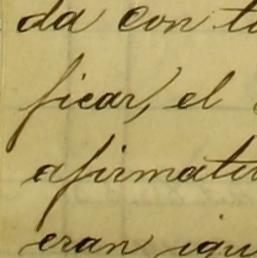 da con t
ficar, el
afirmati
eran igu